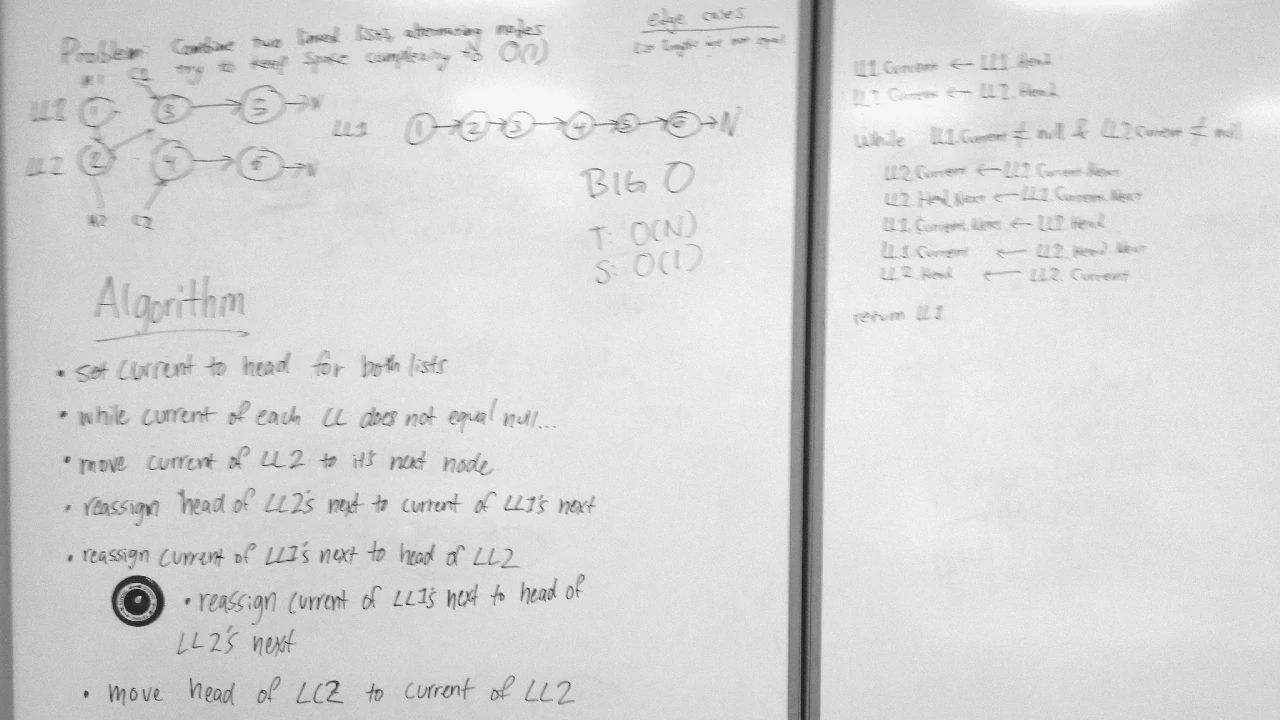 Problem: Combine two linked lists, alternating nodes
try to keep space complexity to O(1)
edge cases
H1 C1
LL1 1 3 5 N
LL2 2 4 6 N
H2 C2
LL1 1 2 3 4 5 6 N
BIG O
T: O(N)
S: O(1)
Algorithm
• set current to head for both lists
• while current of each LL does not equal null...
• move current of LL2 to it's next node
• reassign head of LL2's next to current of LL1's next
• reassign current of LL1's next to head of LL2
• reassign current of LL1's next to head of
LL2's next
• move head of LL2 to current of LL2
LL1.Current ← LL1.Head
LL2.Current ← LL2.Head
while LL1.Current ≠ null & LL2.Current ≠ null
LL2.Current ← LL2.Current.Next
LL2.Head.Next ← LL1.Current.Next
LL1.Current.Next ← LL2.Head
LL1.Current ← LL2.Head.Next
LL2.Head ← LL2.Current
return LL1